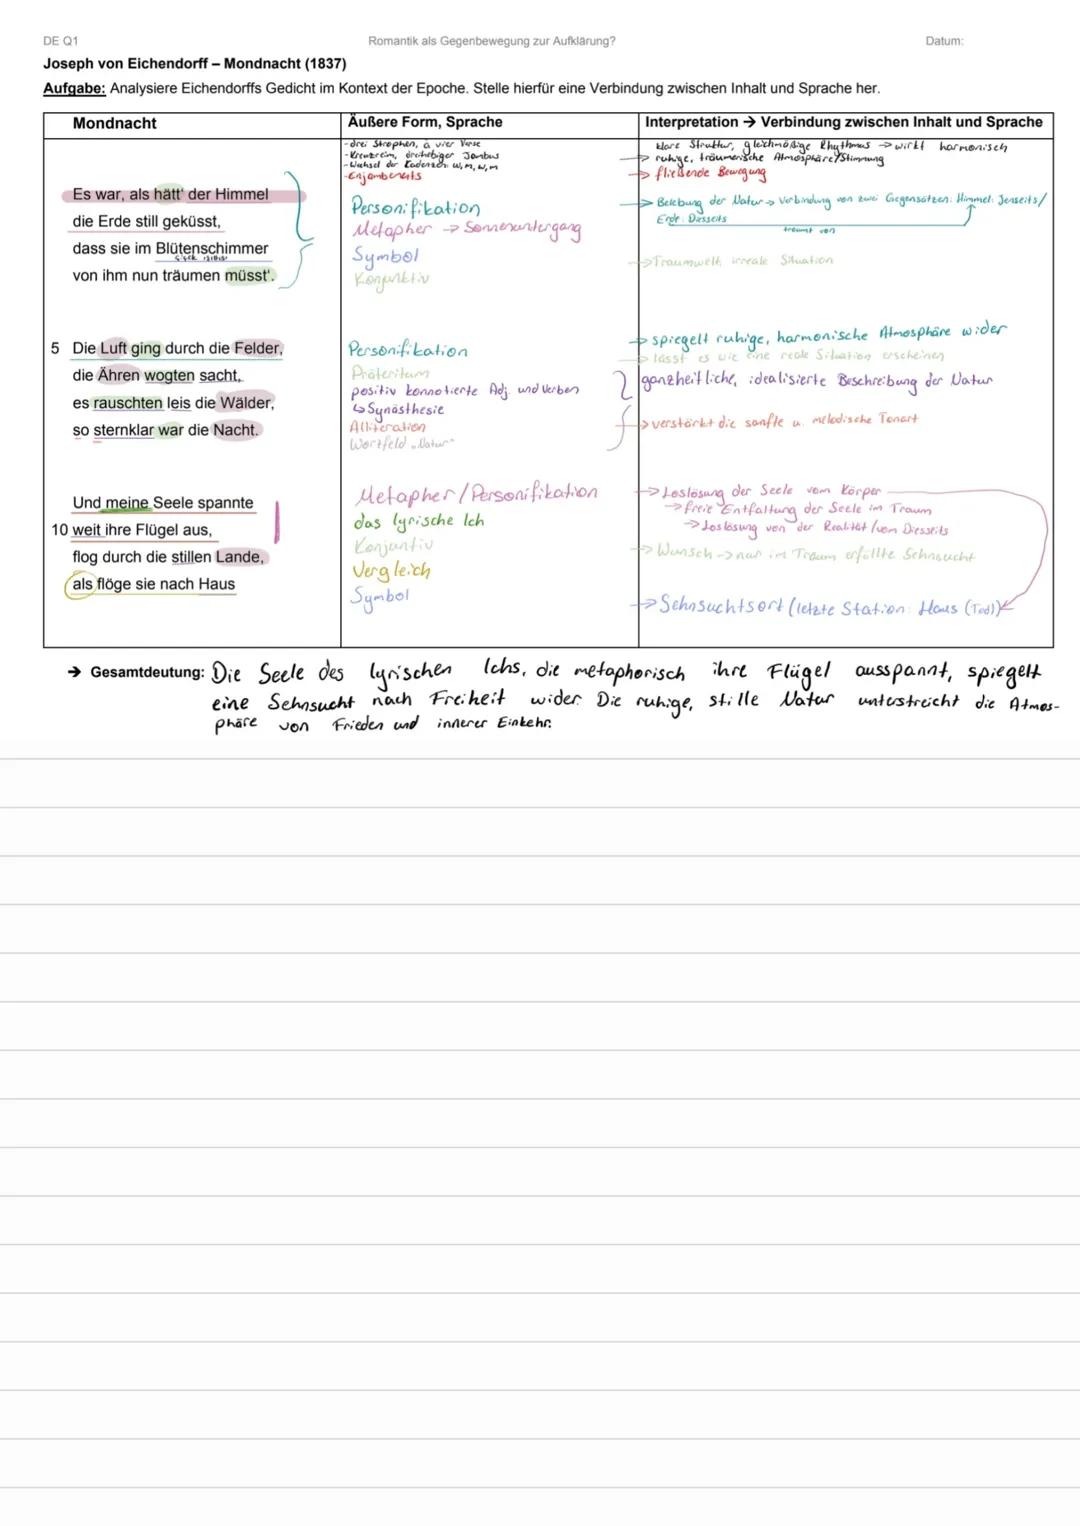 DE Q1 Romantik als Gegenbewegung zur Aufklärung? Datum:
Joseph von Eichendorff – Mondnacht (1837)
Aufgabe: Analysiere Eichendorffs Gedicht im Kontext der Epoche. Stelle hierfür eine Verbindung zwischen Inhalt und Sprache her.
Mondnacht
Es war, als hätt' der Himmel
die Erde still geküsst,
dass sie im Blütenschimmer
von ihm nun träumen müsst'.
5 Die Luft ging durch die Felder,
die Ähren wogten sacht,
es rauschten leis die Wälder,
so sternklar war die Nacht.
Und meine Seele spannte
10 weit ihre Flügel aus,
flog durch die stillen Lande,
als flöge sie nach Haus
Äußere Form, Sprache
-drei Strophen, à vier Verse
-Kreuzreim, dreihebiger Jambus
-Wechsel der Kadenzen w, m, w, m
-Enjambements
Personifikation
Metapher → Sonnenuntergang
Symbol
Konjunktiv
Personifikation
Präteritum
positiv konnotierte Adj. und Verben
↳ Synästhesie
Alliteration
Wortfeld „Natur"
Metapher / Personifikation
das lyrische Ich
Konjuntiv
Vergleich
Symbol
Interpretation → Verbindung zwischen Inhalt und Sprache
klare Struktur, gleichmäßige Rhythmus → wirkt harmonisch
→ ruhige, träumerische Atmosphäre/Stimmung
→ fließende Bewegung
→ Belebung der Natur → Verbindung von zwei Gegensätzen: Himmel: Jenseits/
Erde: Diesseits
träumt von
→ Traumwelt, irreale Situation
→ spiegelt ruhige, harmonische Atmosphäre wider
→ lässt es wie eine reale Situation erscheinen
ganzheitliche, idealisierte Beschreibung der Natur
→ verstärkt die sanfte u. melodische Tonart
→ Loslösung der Seele vom Körper
→ freie Entfaltung der Seele im Traum
→ Loslösung von der Realität / vom Diesseits
→ Wunsch → nur im Traum erfüllte Sehnsucht
→ Sehnsuchtsort (letzte Station: Haus (Tod))
→ Gesamtdeutung: Die Seele des lyrischen Ichs, die metaphorisch ihre Flügel ausspannt, spiegelt
eine Sehnsucht nach Freiheit wider. Die ruhige, stille Natur unterstreicht die Atmos-
phäre von Frieden und innerer Einkehr.